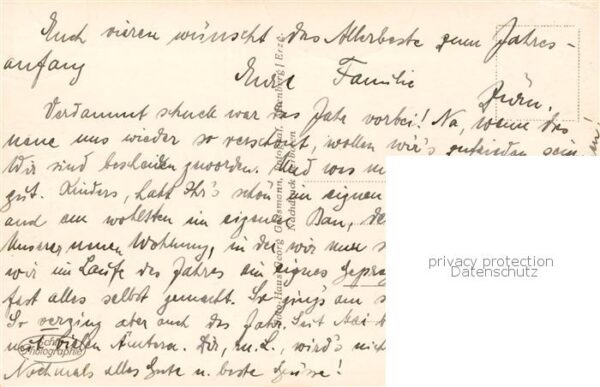 Euch vieren wünscht das Allerbeste zum Jahres-
anfang Eure Familie
Verdammt schnell war das Jahr vorbei! Na, wenn das
neue uns wieder so verschont, wollen wir's zufrieden sein,
Wir sind bescheiden geworden. Und was
gut. Kinders, habt Ihr's schön im eignen
und am wohlsten im eigenen Bau,
Unserer neuen Wohnung, in der wir nun
wir im Laufe des Jahres ein eignes Gepräge
fast alles selbst gemacht. So gings am
So verging aber auch das Jahr. Seit Mai
mit vielen Ämtern. Dir, m. L., wird's
Nochmals alles Gute u. beste Grüsse!
Foto Hans Georg
Nachdruck verboten
Echte Photographie
privacy protection
Datenschutz